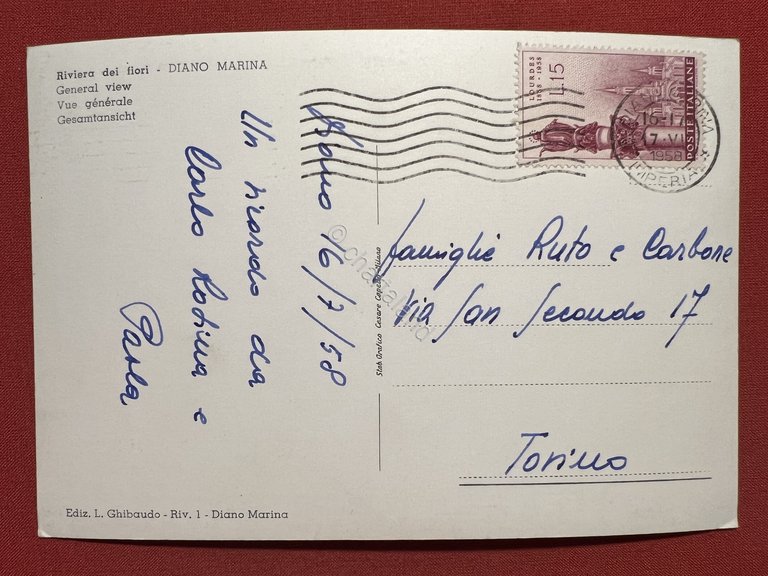 Riviera dei fiori - DIANO MARINA
General view
Vue générale
Gesamtansicht
Diano 16/7/58
Un ricordo da
Carlo Rosina e
Paola
LOURDES
1858 - 1958
L.15
POSTE ITALIANE
16-17
17 VII
1958
IMPERIA
famiglie Ruto e Carbone
Via San Secondo 17
Torino
Stab Grafico Cesare Capello Milano
Ediz. L. Ghibaudo - Riv. 1 - Diano Marina